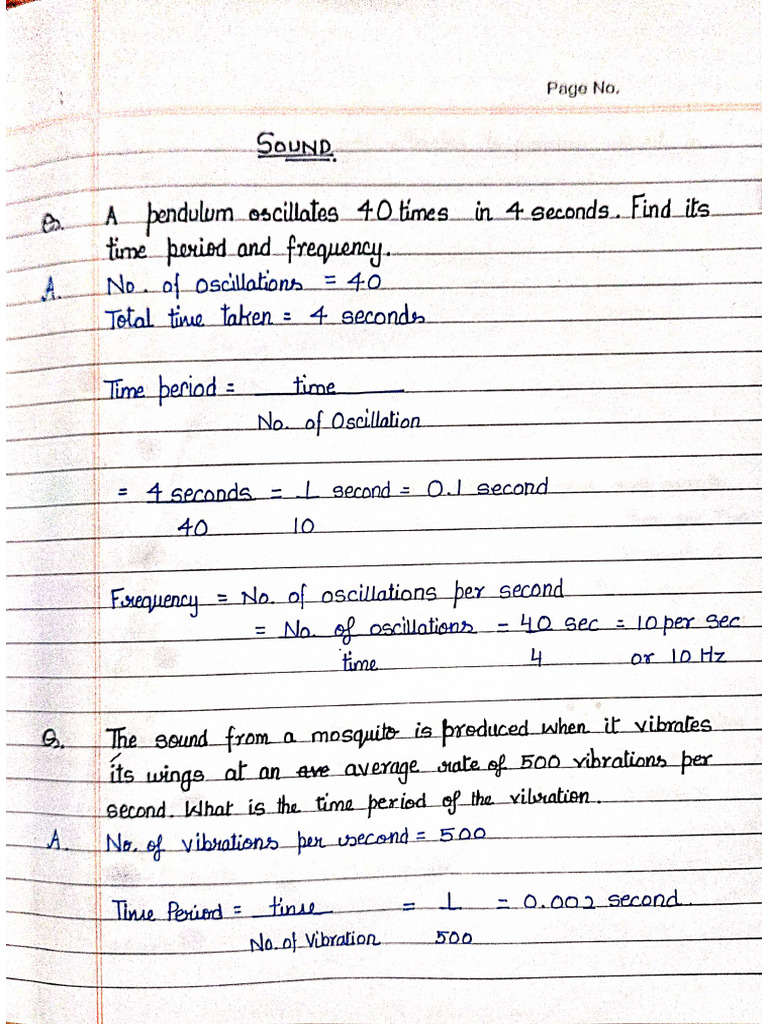 Page No.
SOUND.
Q. A pendulum oscillates 40 times in 4 seconds. Find its
time period and frequency.
A. No. of oscillations = 40
Total time taken = 4 seconds
Time period = time
No. of Oscillation
= 4 seconds = 1 second = 0.1 second
40 10
Frequency = No. of oscillations per second
= No. of oscillations = 40 sec = 10 per sec
time 4 or 10 Hz
Q. The sound from a mosquito is produced when it vibrates
its wings at an ave average rate of 500 vibrations per
second. What is the time period of the vibration.
A. No. of vibrations per second = 500
Time Period = time = 1 = 0.002 second.
No. of Vibration 500